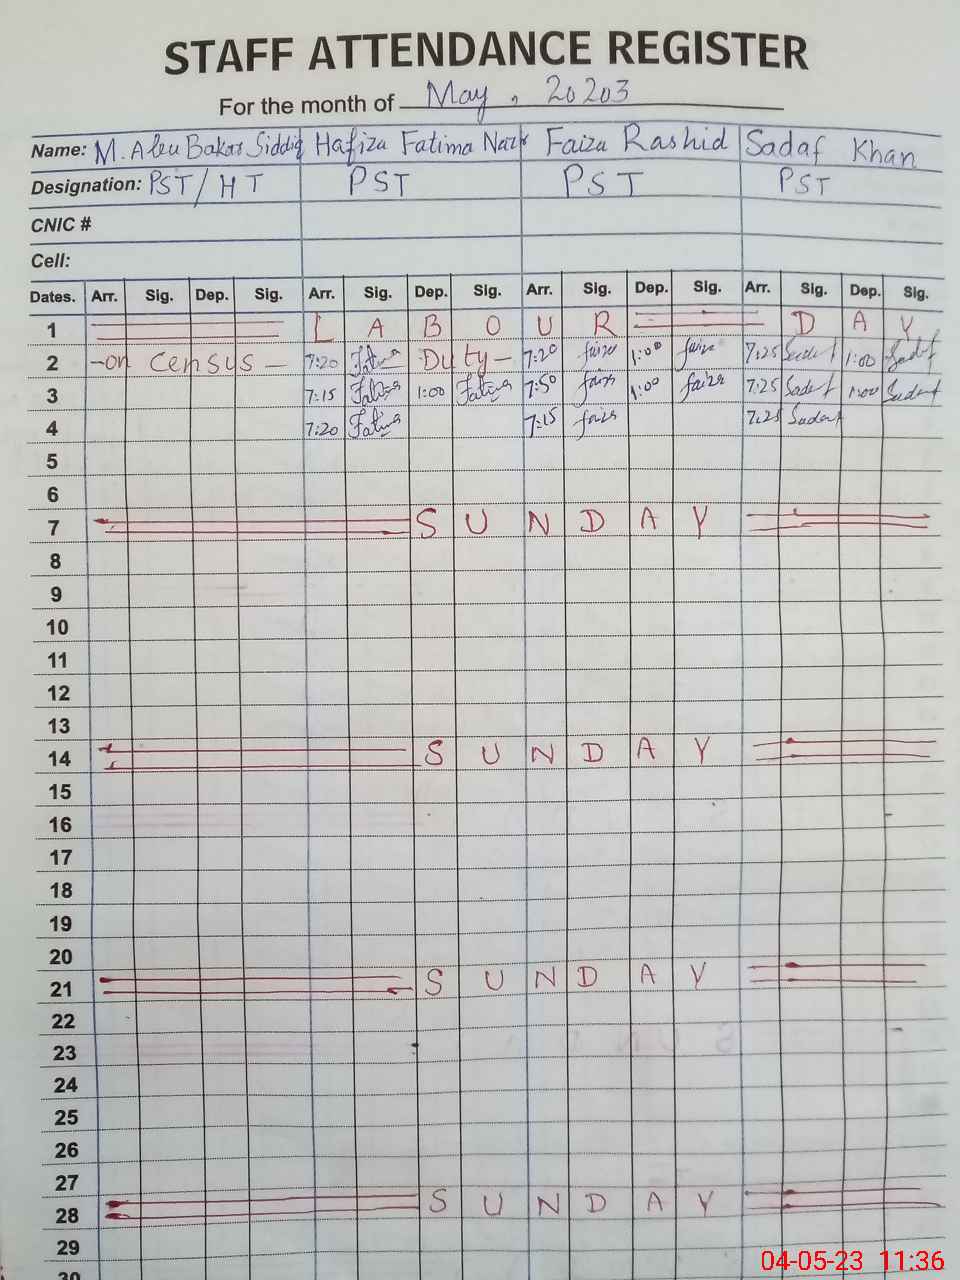 STAFF ATTENDANCE REGISTER
For the month of May, 20203
Name: M. Abu Bakar Siddiq Hafiza Fatima Nazir Faiza Rashid Sadaf Khan
Designation: PST/HT PST PST PST
CNIC #
Cell:
Dates. Arr. Sig. Dep. Sig. Arr. Sig. Dep. Sig. Arr. Sig. Dep. Sig. Arr. Sig. Dep. Sig.
1 LABOUR DAY
2 -on census- 7:20 Fatima Duty- 7:20 faiza 1:00 faiza 7:25 Sadaf 1:00 Sadaf
3 7:15 Fatima 1:00 Fatima 7:50 faiza 1:00 faiza 7:25 Sadaf 1:00 Sadaf
4 7:20 Fatima 7:15 faiza 7:25 Sadaf
5
6
7 SUNDAY
8
9
10
11
12
13
14 SUNDAY
15
16
17
18
19
20
21 SUNDAY
22
23
24
25
26
27
28 SUNDAY
29
30
04-05-23 11:36